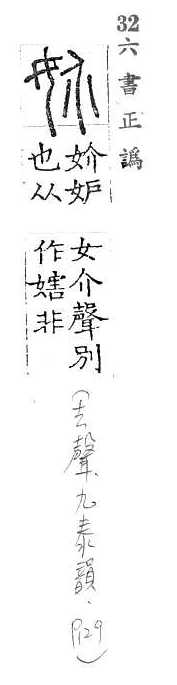 32 六書正譌
妎妒
也从
女介聲別
作㛿非
(去聲.九泰韻.P129)